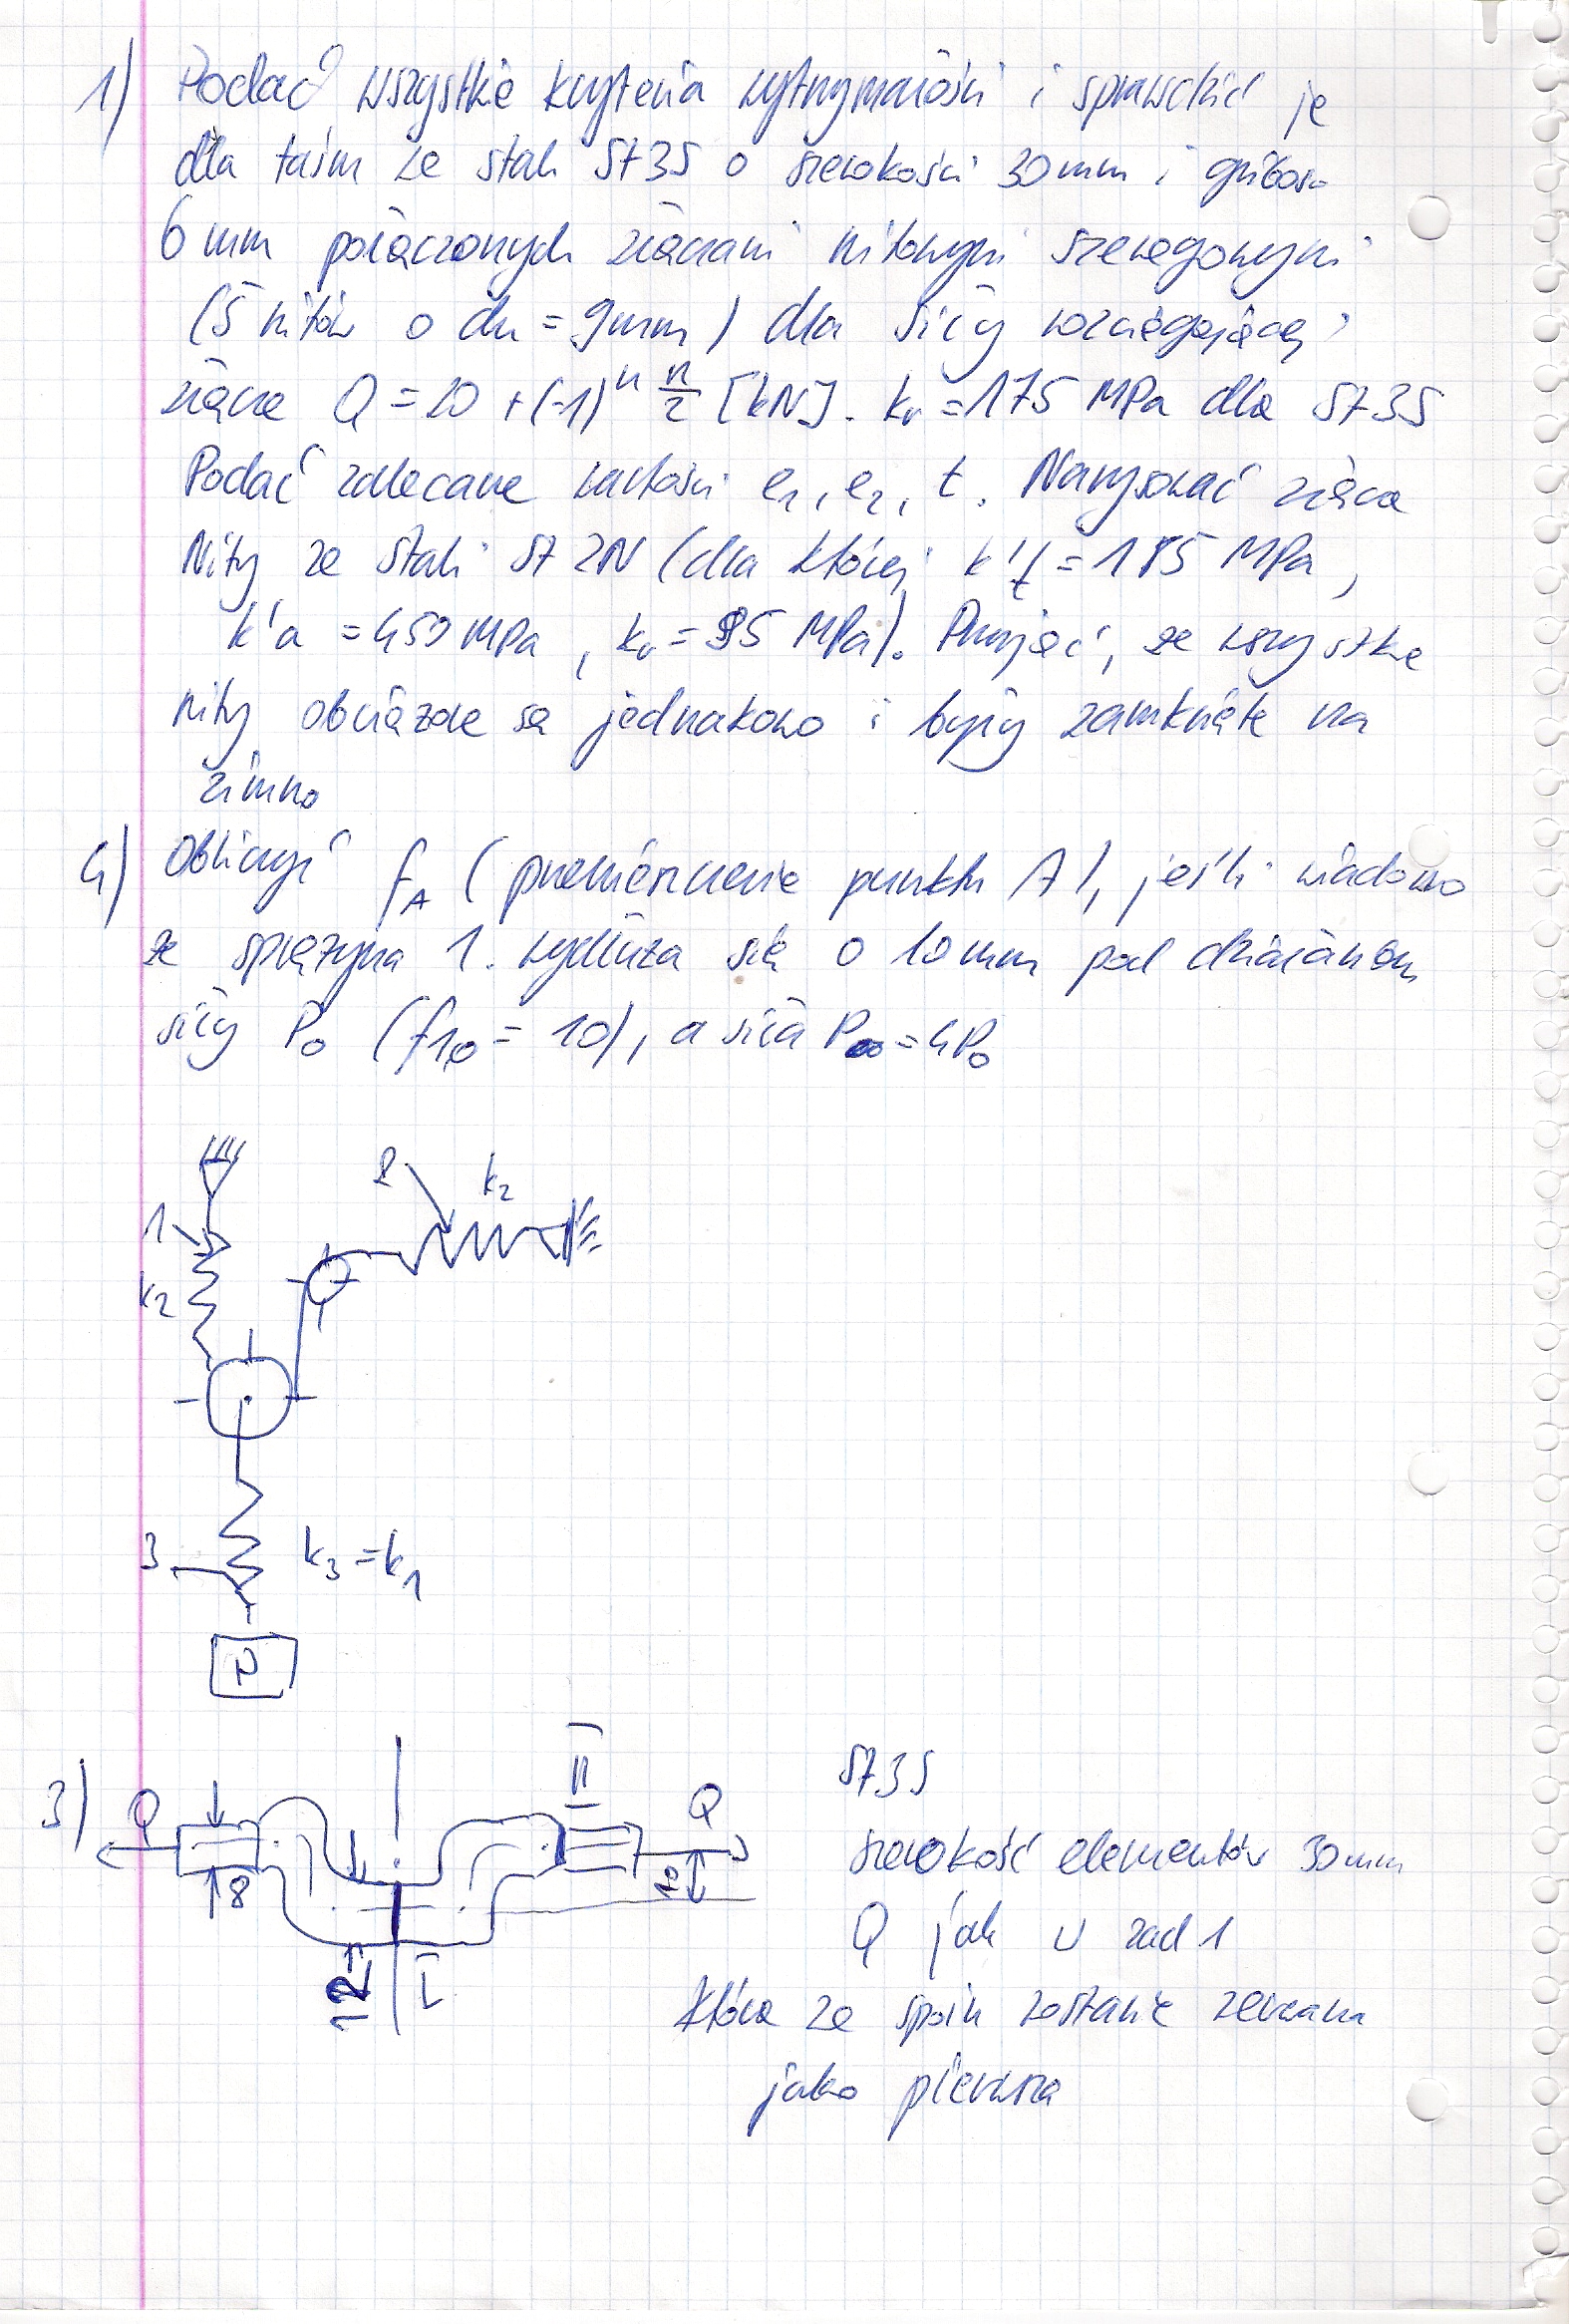 1) Podać wszystkie kryteria wytrzymałości i sprawdzić je
dla taśm ze stali St3S o szerokości 30mm i grubości
6 mm połączonych złączami nitowymi szeregowymi
(5 nitów o dn = 9mm) dla siły rozciągającej
złącze Q = 20 + (-1)^n n/2 [kN]. kr = 175 MPa dla St3S
Podać zalecane wartości e1, e2, t. Narysować złącze
Nity ze stali St 2N (dla której k't = 185 MPa,
k'a = 450 MPa, kr = 95 MPa). Przyjąć, że wszystkie
nity obciążone są jednakowo i były zamknięte na
zimno
4) Obliczyć fA (przemieszczenie punktu A), jeśli wiadomo
że sprężyna 1. wydłuża się o 10mm pod działaniem
siły P0 (f10 = 10), a siła P = 4P0
2 k2
1
k2
3 k3 = k1
P
3) Q 8 12 I II Q
St3S
szerokość elementów 30mm
Q jak w zad 1
która ze spoin zostanie zerwana
jako pierwsza